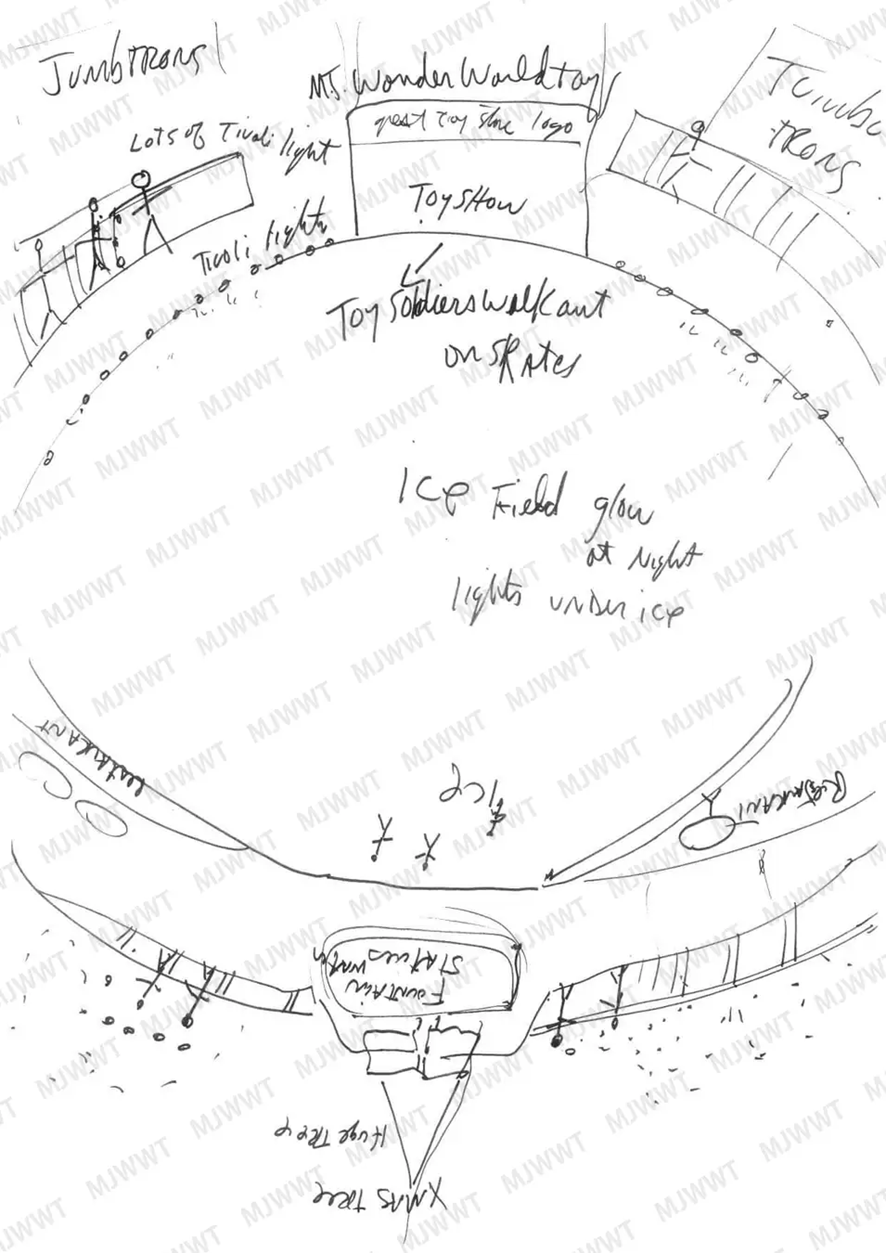 Jumbtrons
MJ. WonderWorldtoys
great toy store logo
Jumbo
trons
Lots of Tivoli light
ToyShow
Tivoli lights
Toy Soldiers walk out
on skates
Ice Field glow
at Night
lights under ice
Restaurant
Ice
Restaurant
Fountain
Statues water
Huge Tree
Xmas Tree
MJWWT